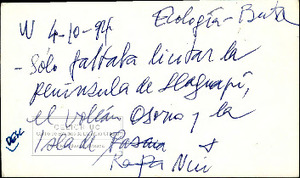 W 4-10-94 Ecología - Beta
- Sólo faltaba licitar la
península de Llaguapi,
el volcán Osorno y la
Isla de Pascua
Rapa Nui